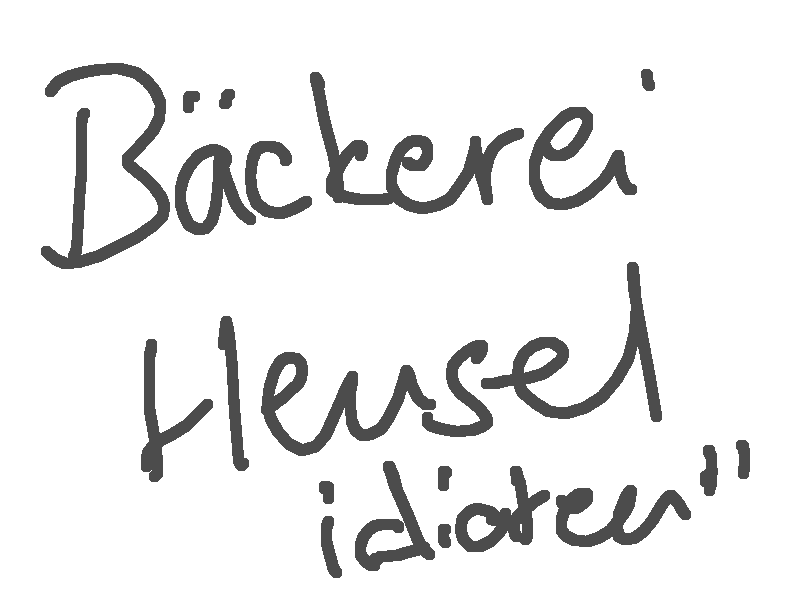 Bäckerei
Hensel
idioten"